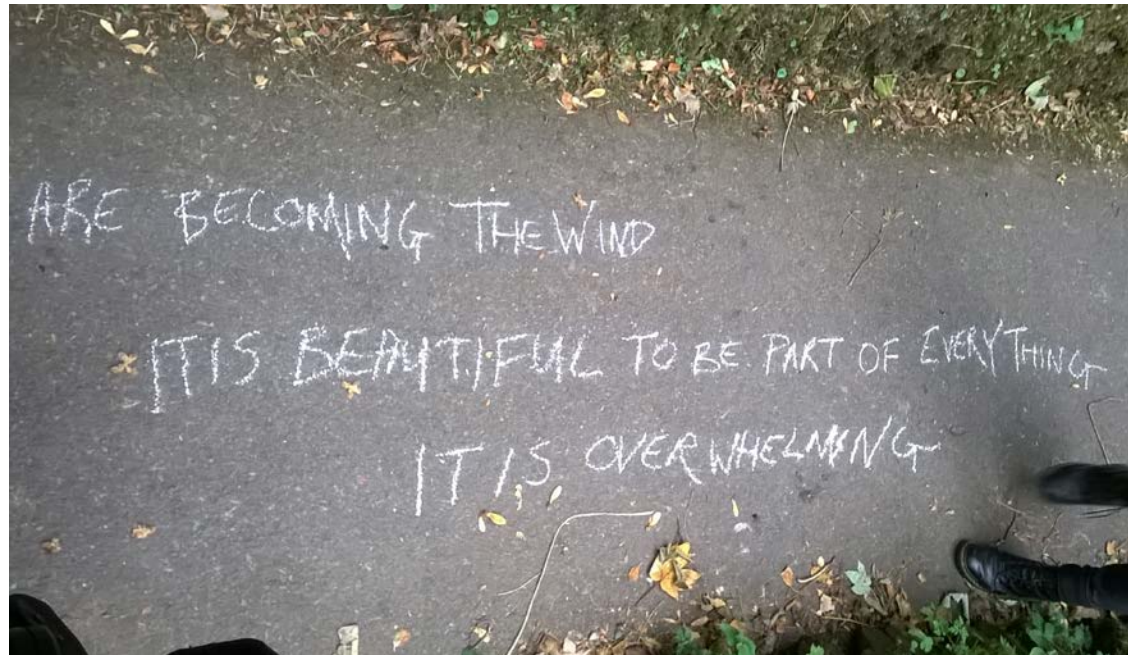 ARE BECOMING THE WIND
IT IS BEAUTIFUL TO BE PART OF EVERYTHING
IT IS OVERWHELMING